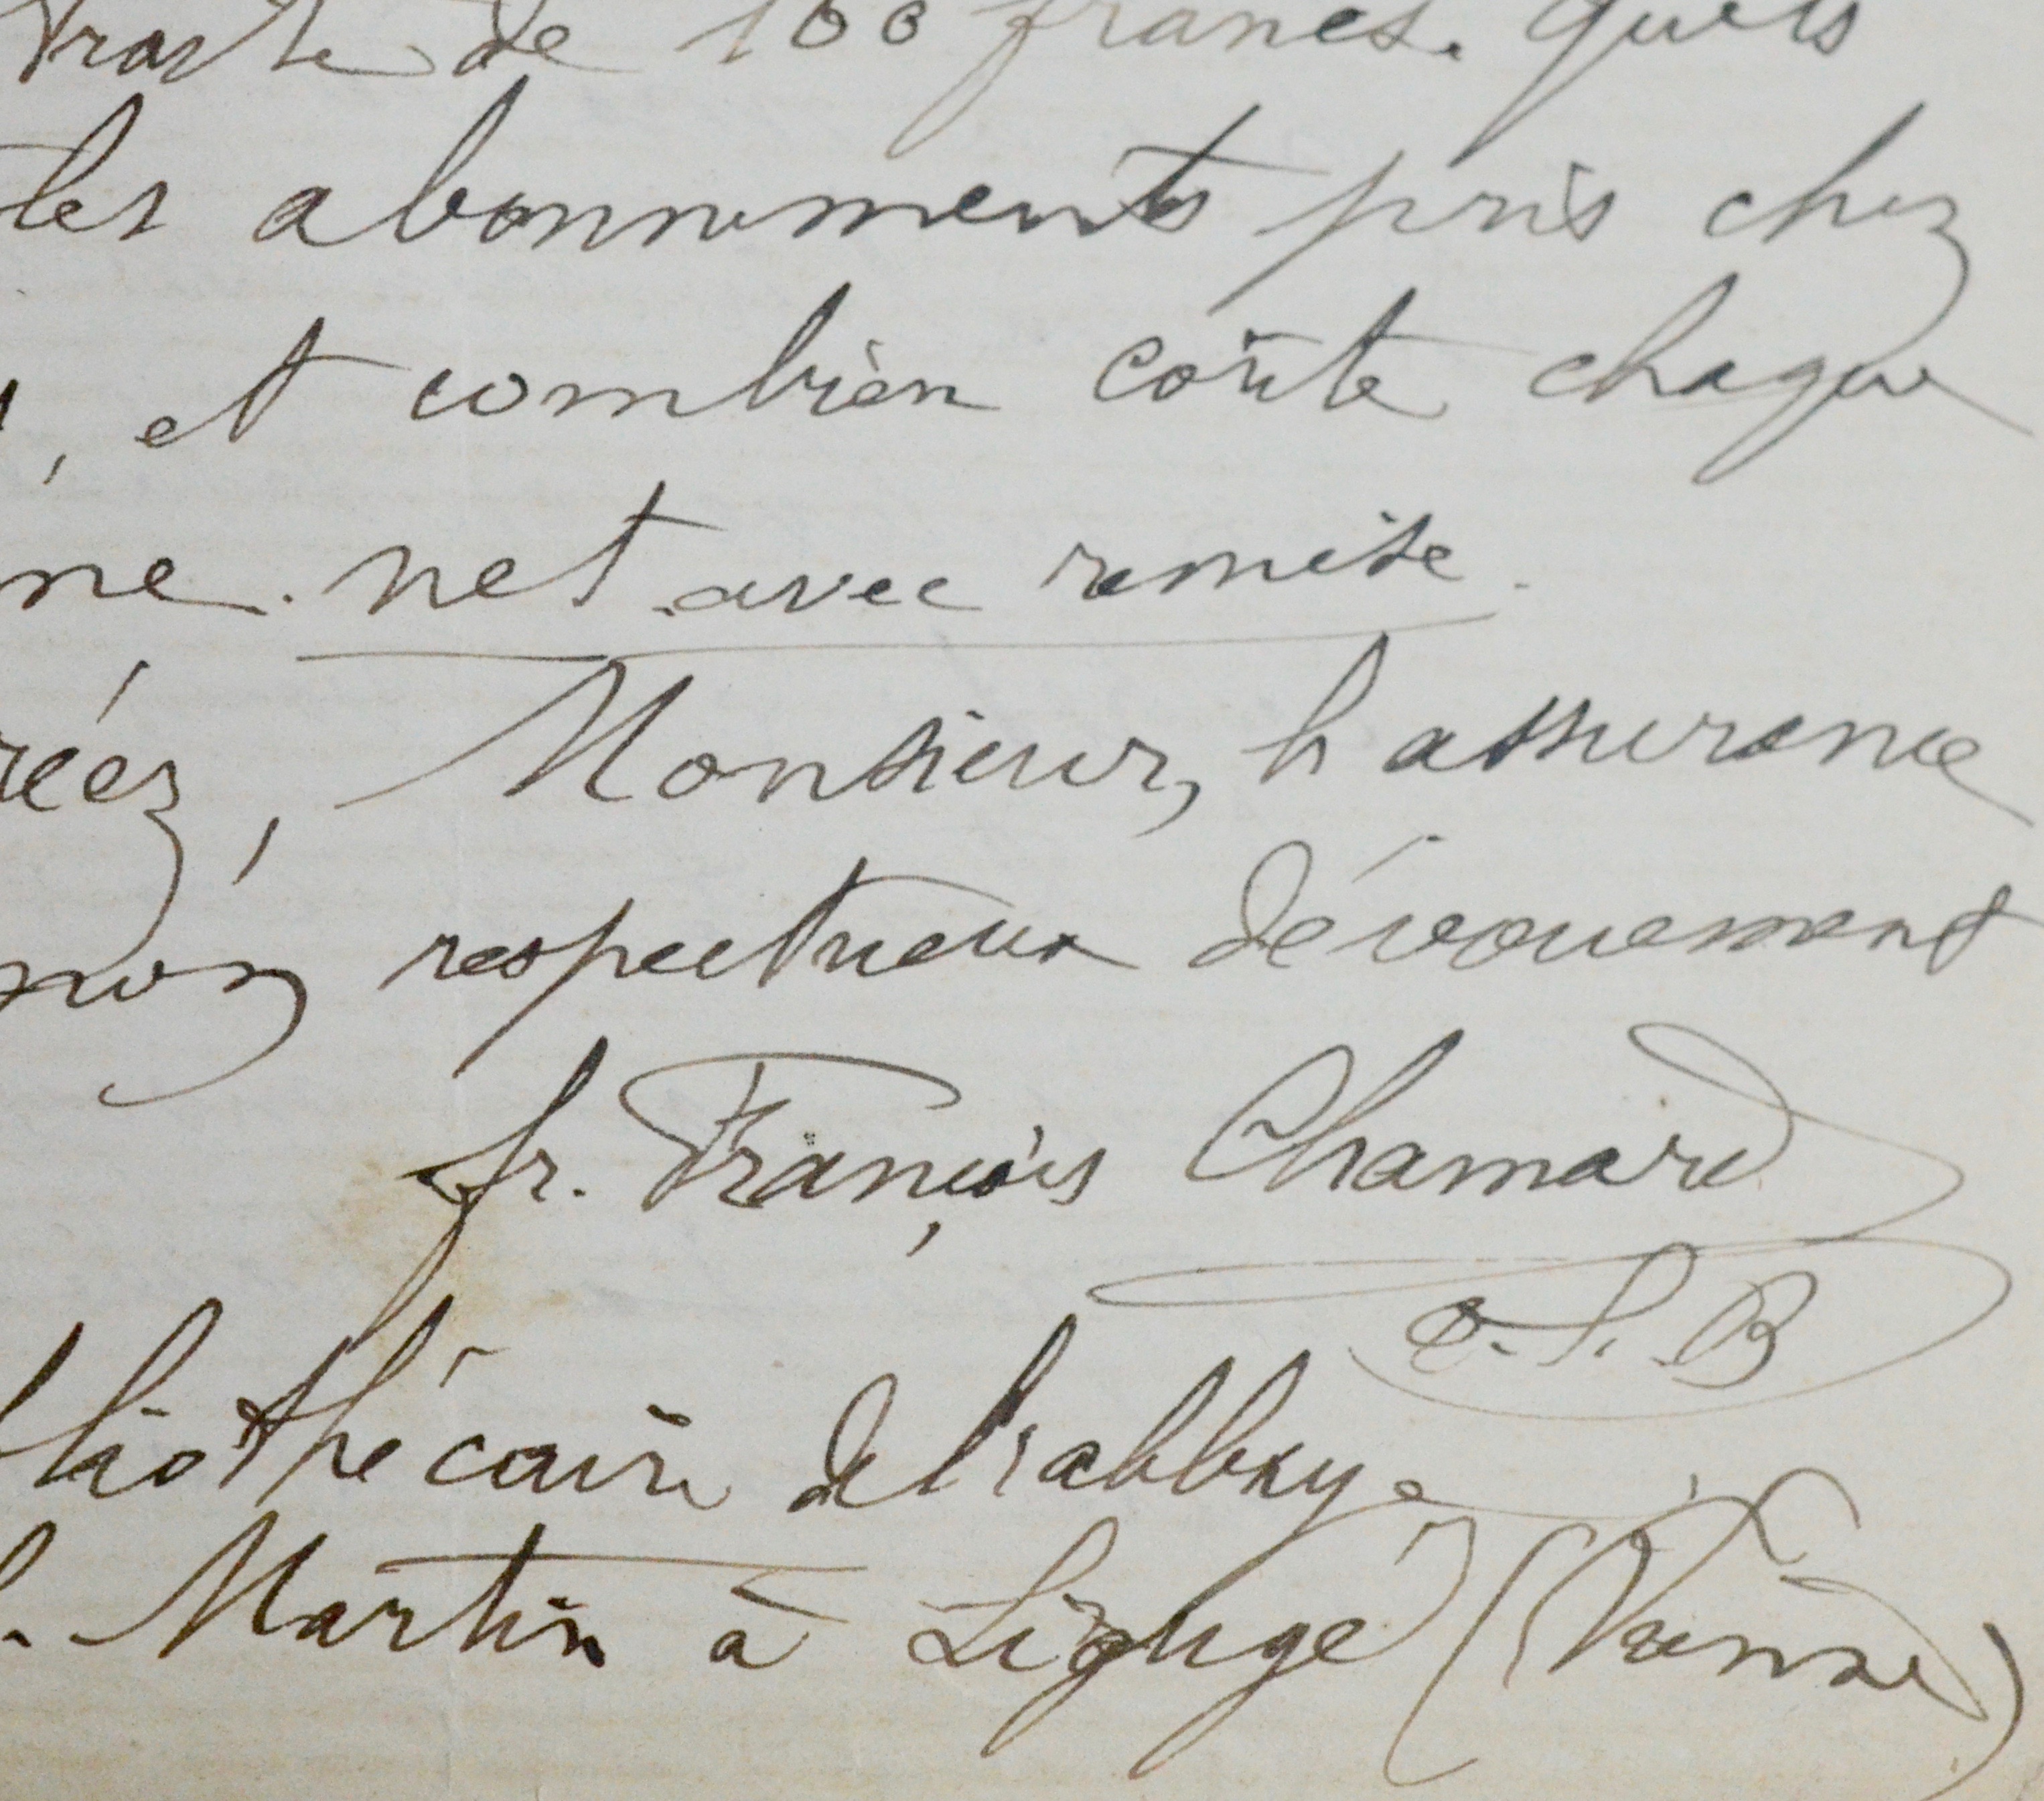 traite de 100 francs. Quels
les abonnements pris chez
, et combien coûte chaque
ne. net avec remise.
réez, Monsieur, l'assurance
mon respectueux dévouement
fr. François Chamard
O. S. B
bliothécaire de l'abbaye
. Martin à Ligugé (Vienne)